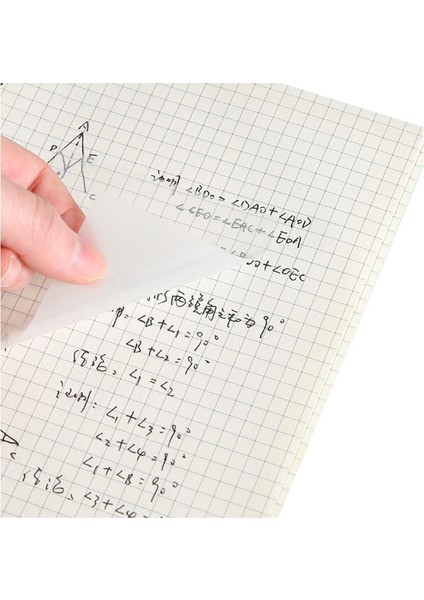 A
D
E
C
证明 ∠BDO = ∠DAO + ∠AOD
∠CEO = ∠EAC + ∠EOA
+ ∠OEC
两锐角之和为90°
∠B + ∠1 = 90°
∠B + ∠2 = 90°
结论: ∠1 = ∠2
证明: ∠1 + ∠3 = 90°
∠2 + ∠4 = 90°
∠1 + ∠B = 90°
结论: ∠3 + ∠4 =
c